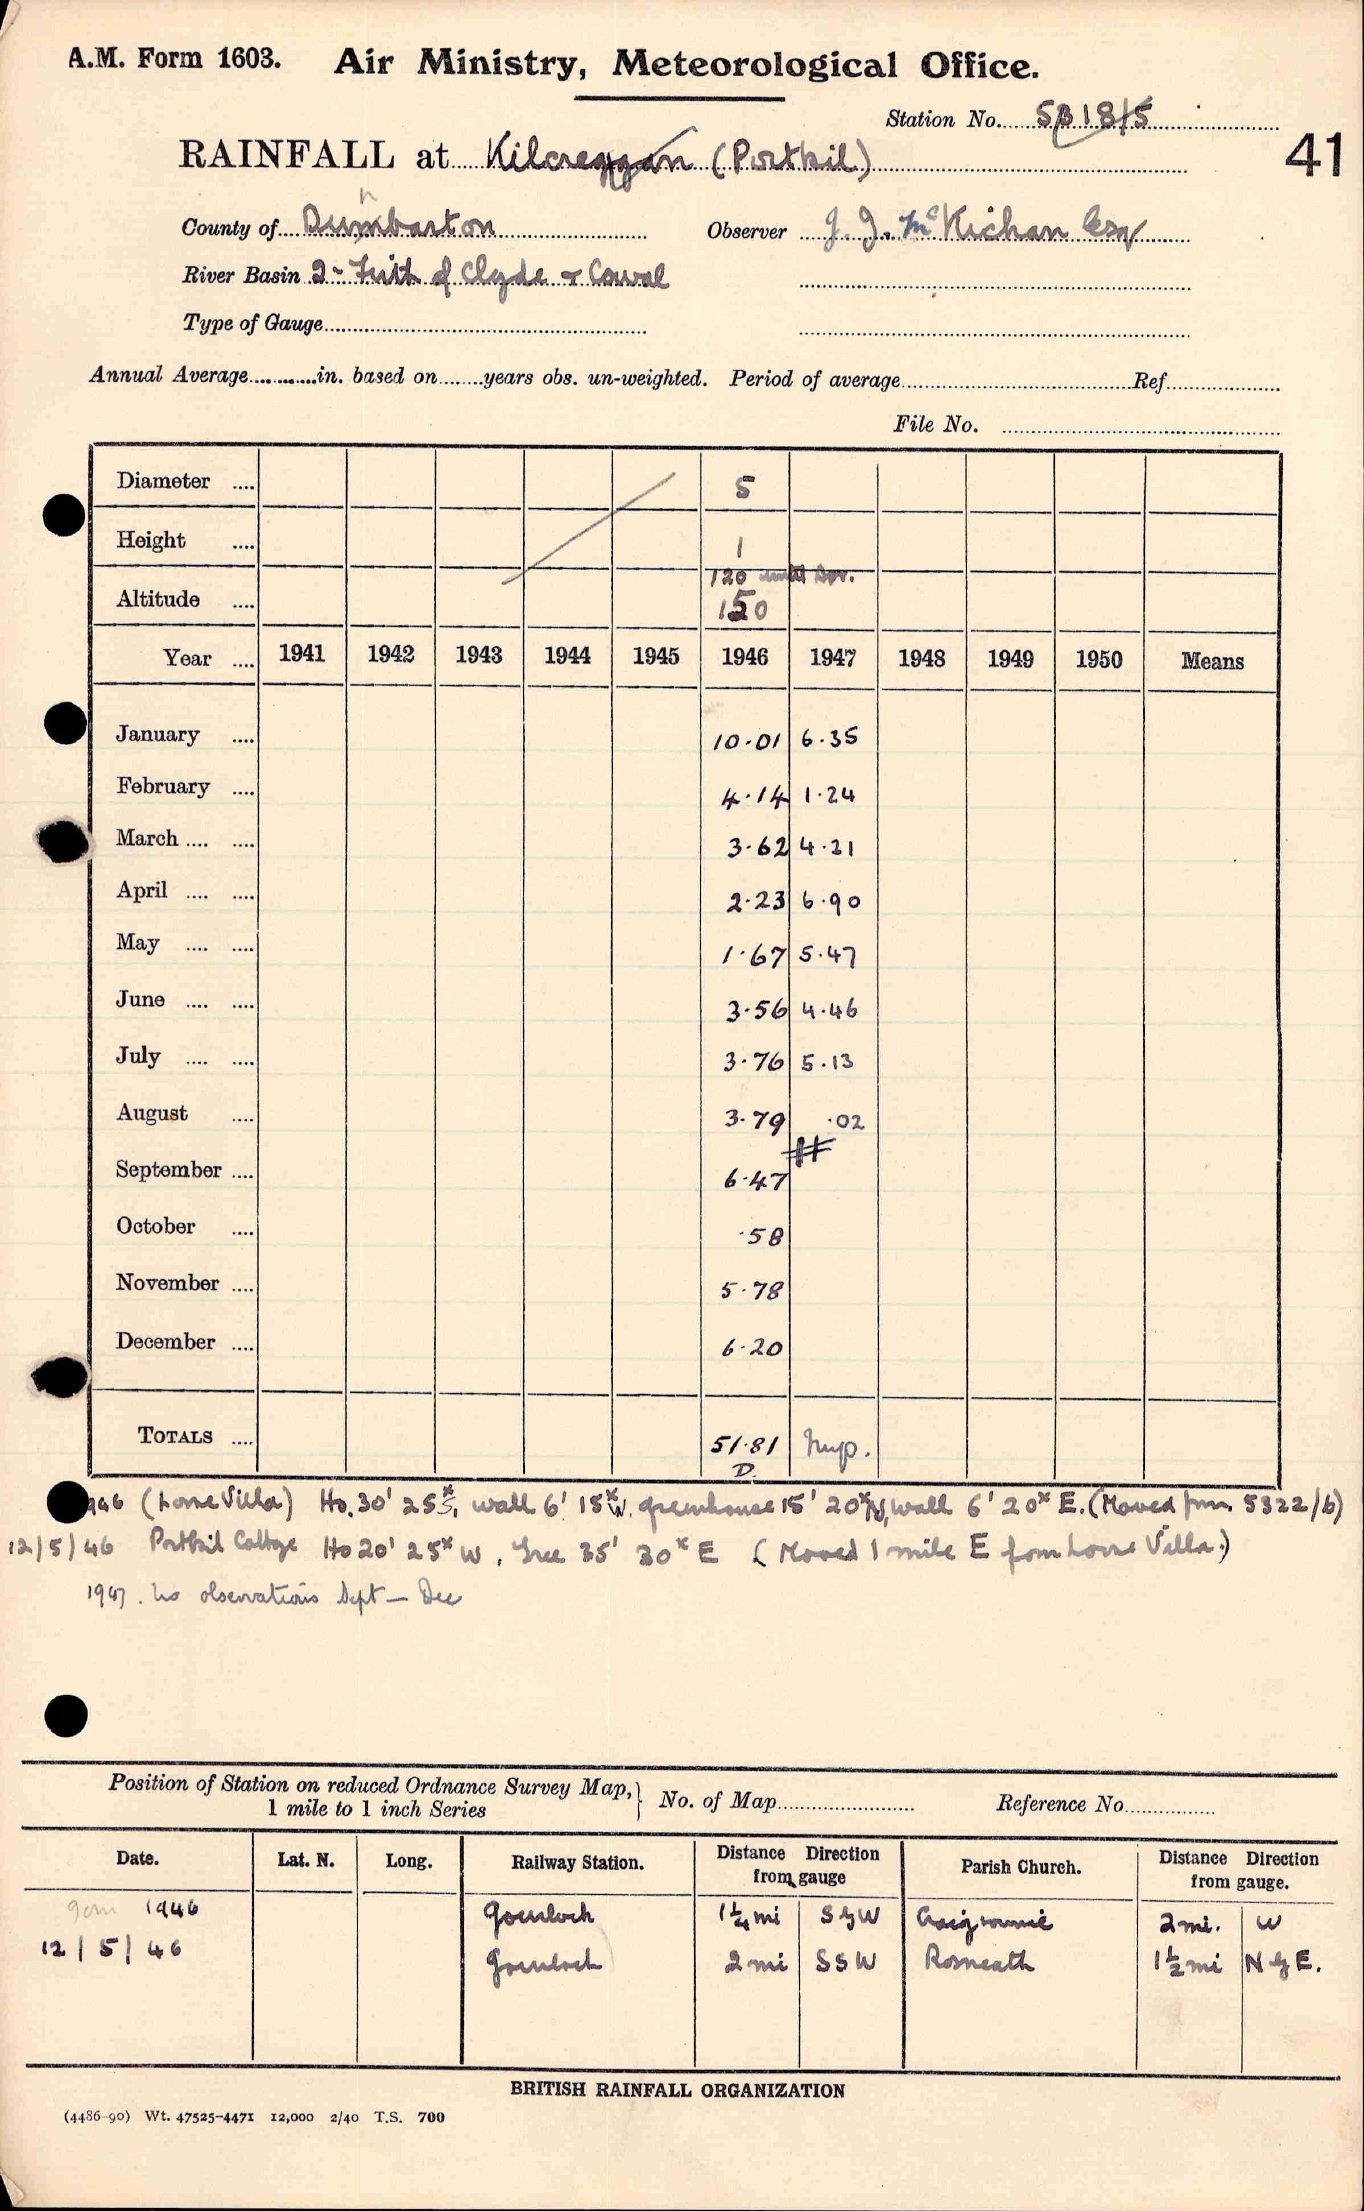 A.M. Form 1603. Air Ministry, Meteorological Office.
Station No. 5318/5
41
RAINFALL at Kilcreggan (Portkil)
County of Dumbarton Observer J. J. McKichan Esq
River Basin 2 - Firth of Clyde & Cowal
Type of Gauge
Annual Average in. based on years obs. un-weighted. Period of average Ref
File No.
Diameter 5
Height 1
120 until Apr.
Altitude 150
Year 1941 1942 1943 1944 1945 1946 1947 1948 1949 1950 Means
January 10.01 6.35
February 4.14 1.24
March 3.62 4.21
April 2.23 6.90
May 1.67 5.47
June 3.56 4.46
July 3.76 5.13
August 3.79 .02
September 6.47
October .58
November 5.78
December 6.20
TOTALS 51.81 Inyp.
D.
1946 (Lorne Villa) Ho. 30' 25x S, wall 6' 15x W, greenhouse 15' 20x N, wall 6' 20x E. (Moved from 5322/6)
12/5/46 Portkil Cottage Ho 20' 25x W, Tree 35' 30x E (Moved 1 mile E from Lorne Villa.)
1947. No observations Sept - Dec
Position of Station on reduced Ordnance Survey Map, 1 mile to 1 inch Series } No. of Map Reference No
Date. Lat. N. Long. Railway Station. Distance Direction from gauge Parish Church. Distance Direction from gauge.
1946 Gourock 1¼ mi S by W Craigrownie 2 mi. W
12/5/46 Gourock 2 mi SSW Rosneath 1½ mi N by E.
BRITISH RAINFALL ORGANIZATION
(4486-90) Wt. 47525-4471 12,000 2/40 T.S. 700